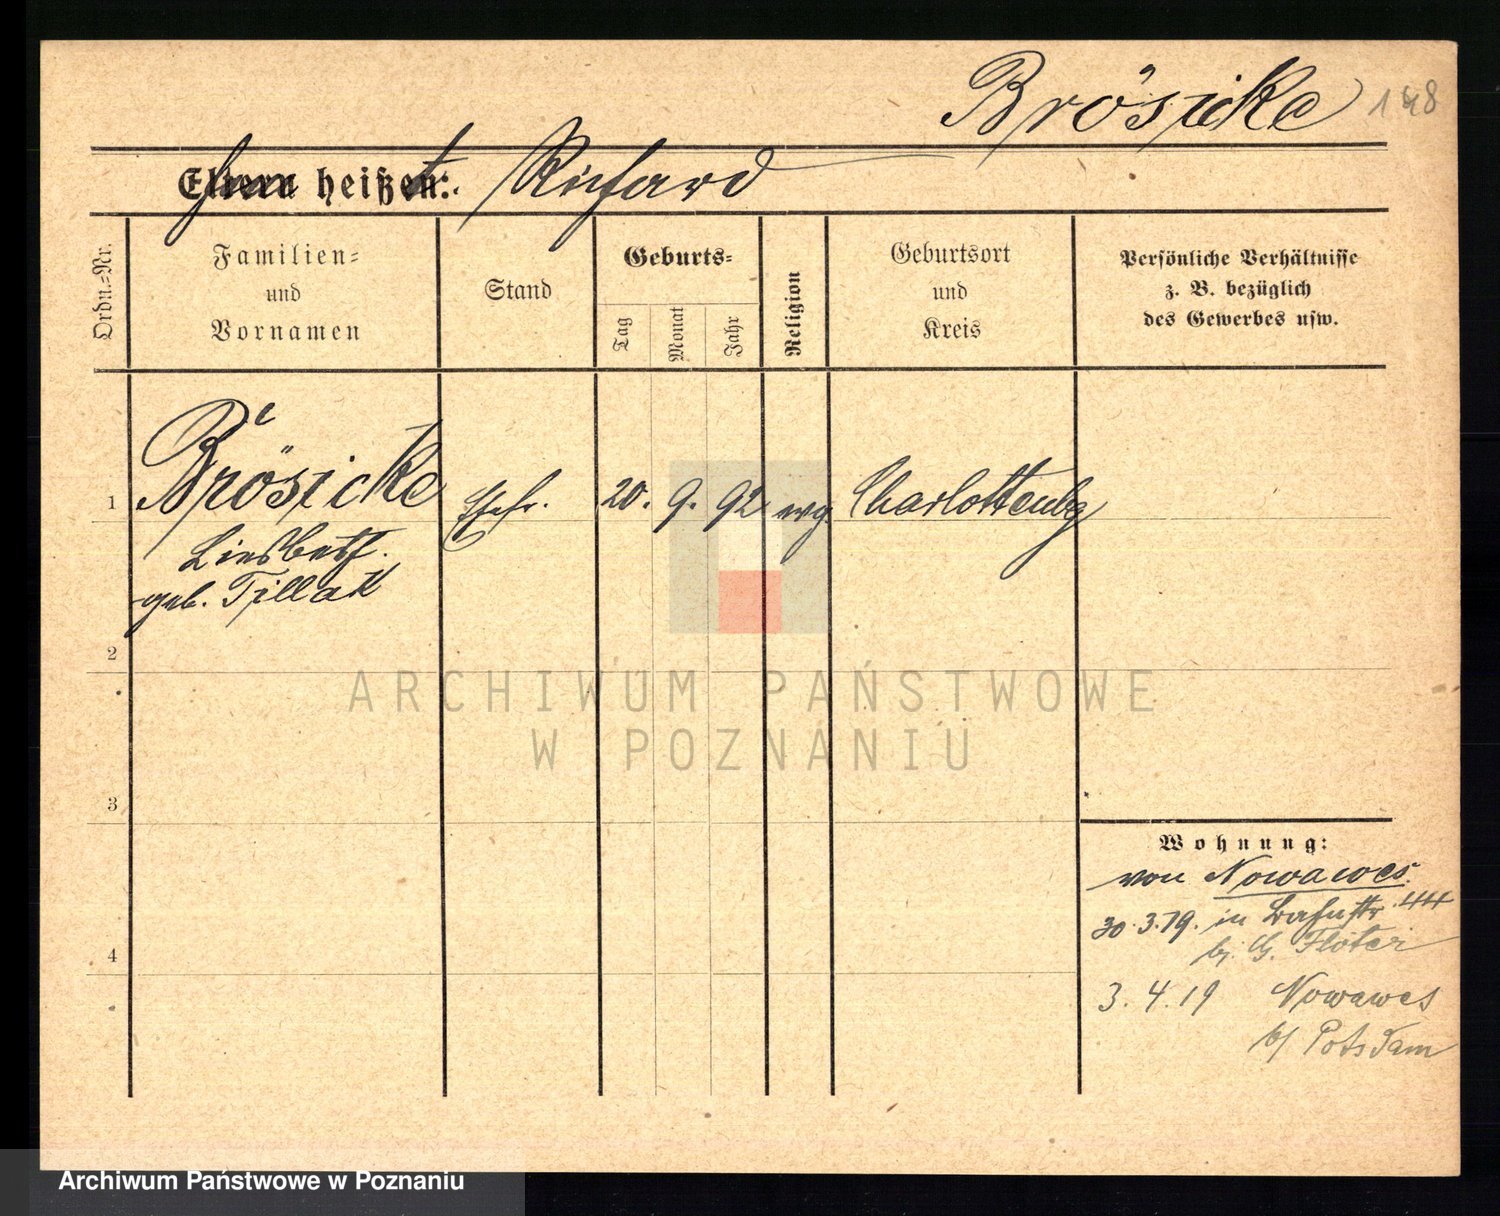 Brösicke 148
Eltern heißen: Richard
Ordn.-Nr.
Familien-
und
Vornamen
Stand
Geburts-
Tag
Monat
Jahr
Religion
Geburtsort
und
Kreis
Persönliche Verhältnisse
z. B. bezüglich
des Gewerbes usw.
1
Brösicke
Liesbeth.
geb. Tillak
Ehefr.
20. 9. 92
evg.
Charlottenbg
2
3
4
ARCHIWUM PAŃSTWOWE
W POZNANIU
Wohnung:
von Nowawes.
30.3.19. in Bahnstr. 44
bj. G. Flöter
3.4.19 Nowawes
b/ Potsdam
Archiwum Państwowe w Poznaniu